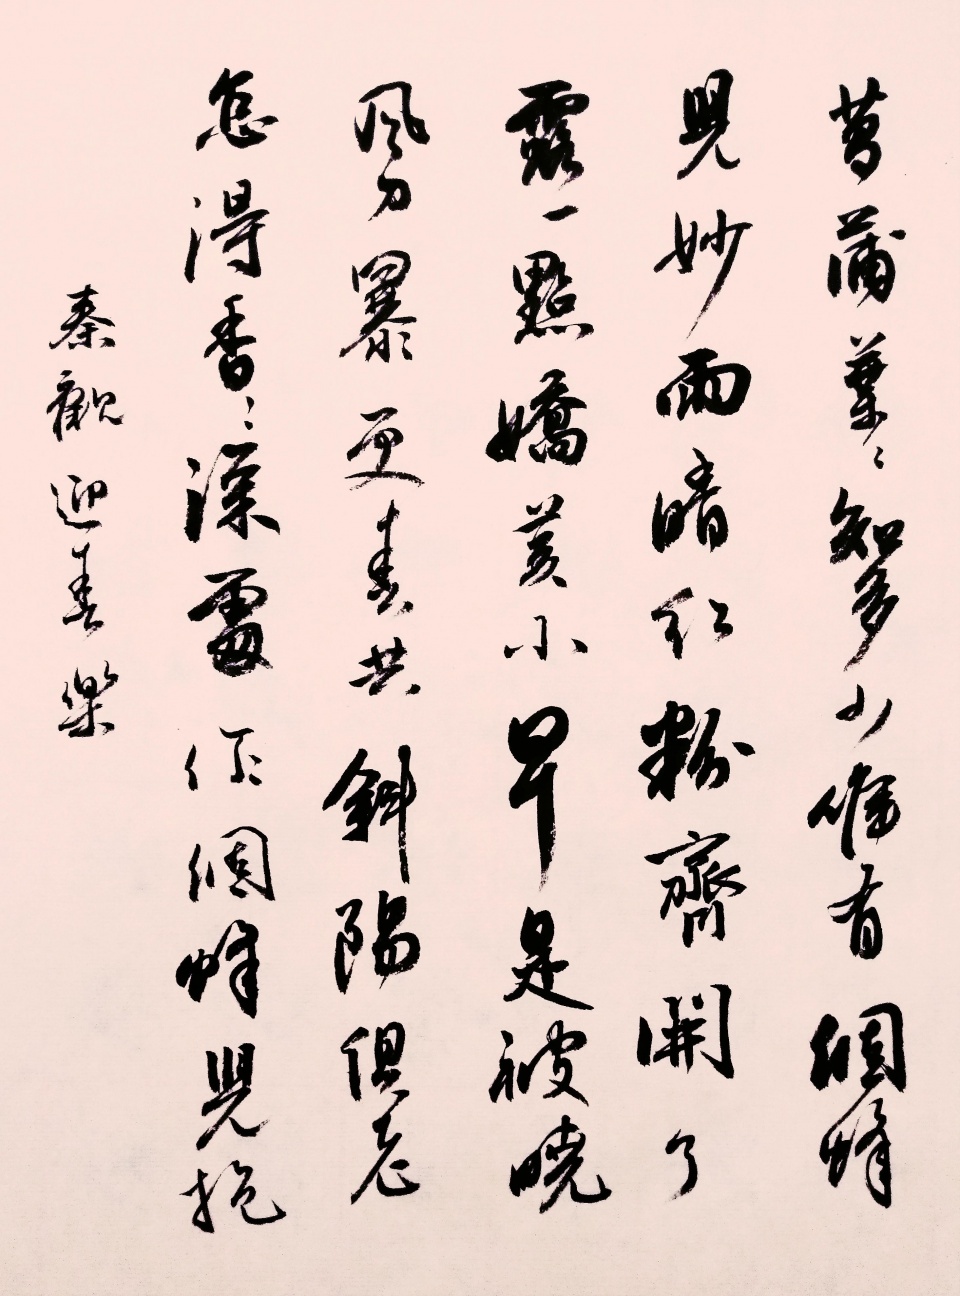 菖蒲葉〻知多少惟有個蜂
兒妙雨晴紅粉齊開了
露一點嬌黃小早是被曉
風力暴更春共斜陽俱老
怎得香〻深處作個蜂兒抱
秦觀迎春樂